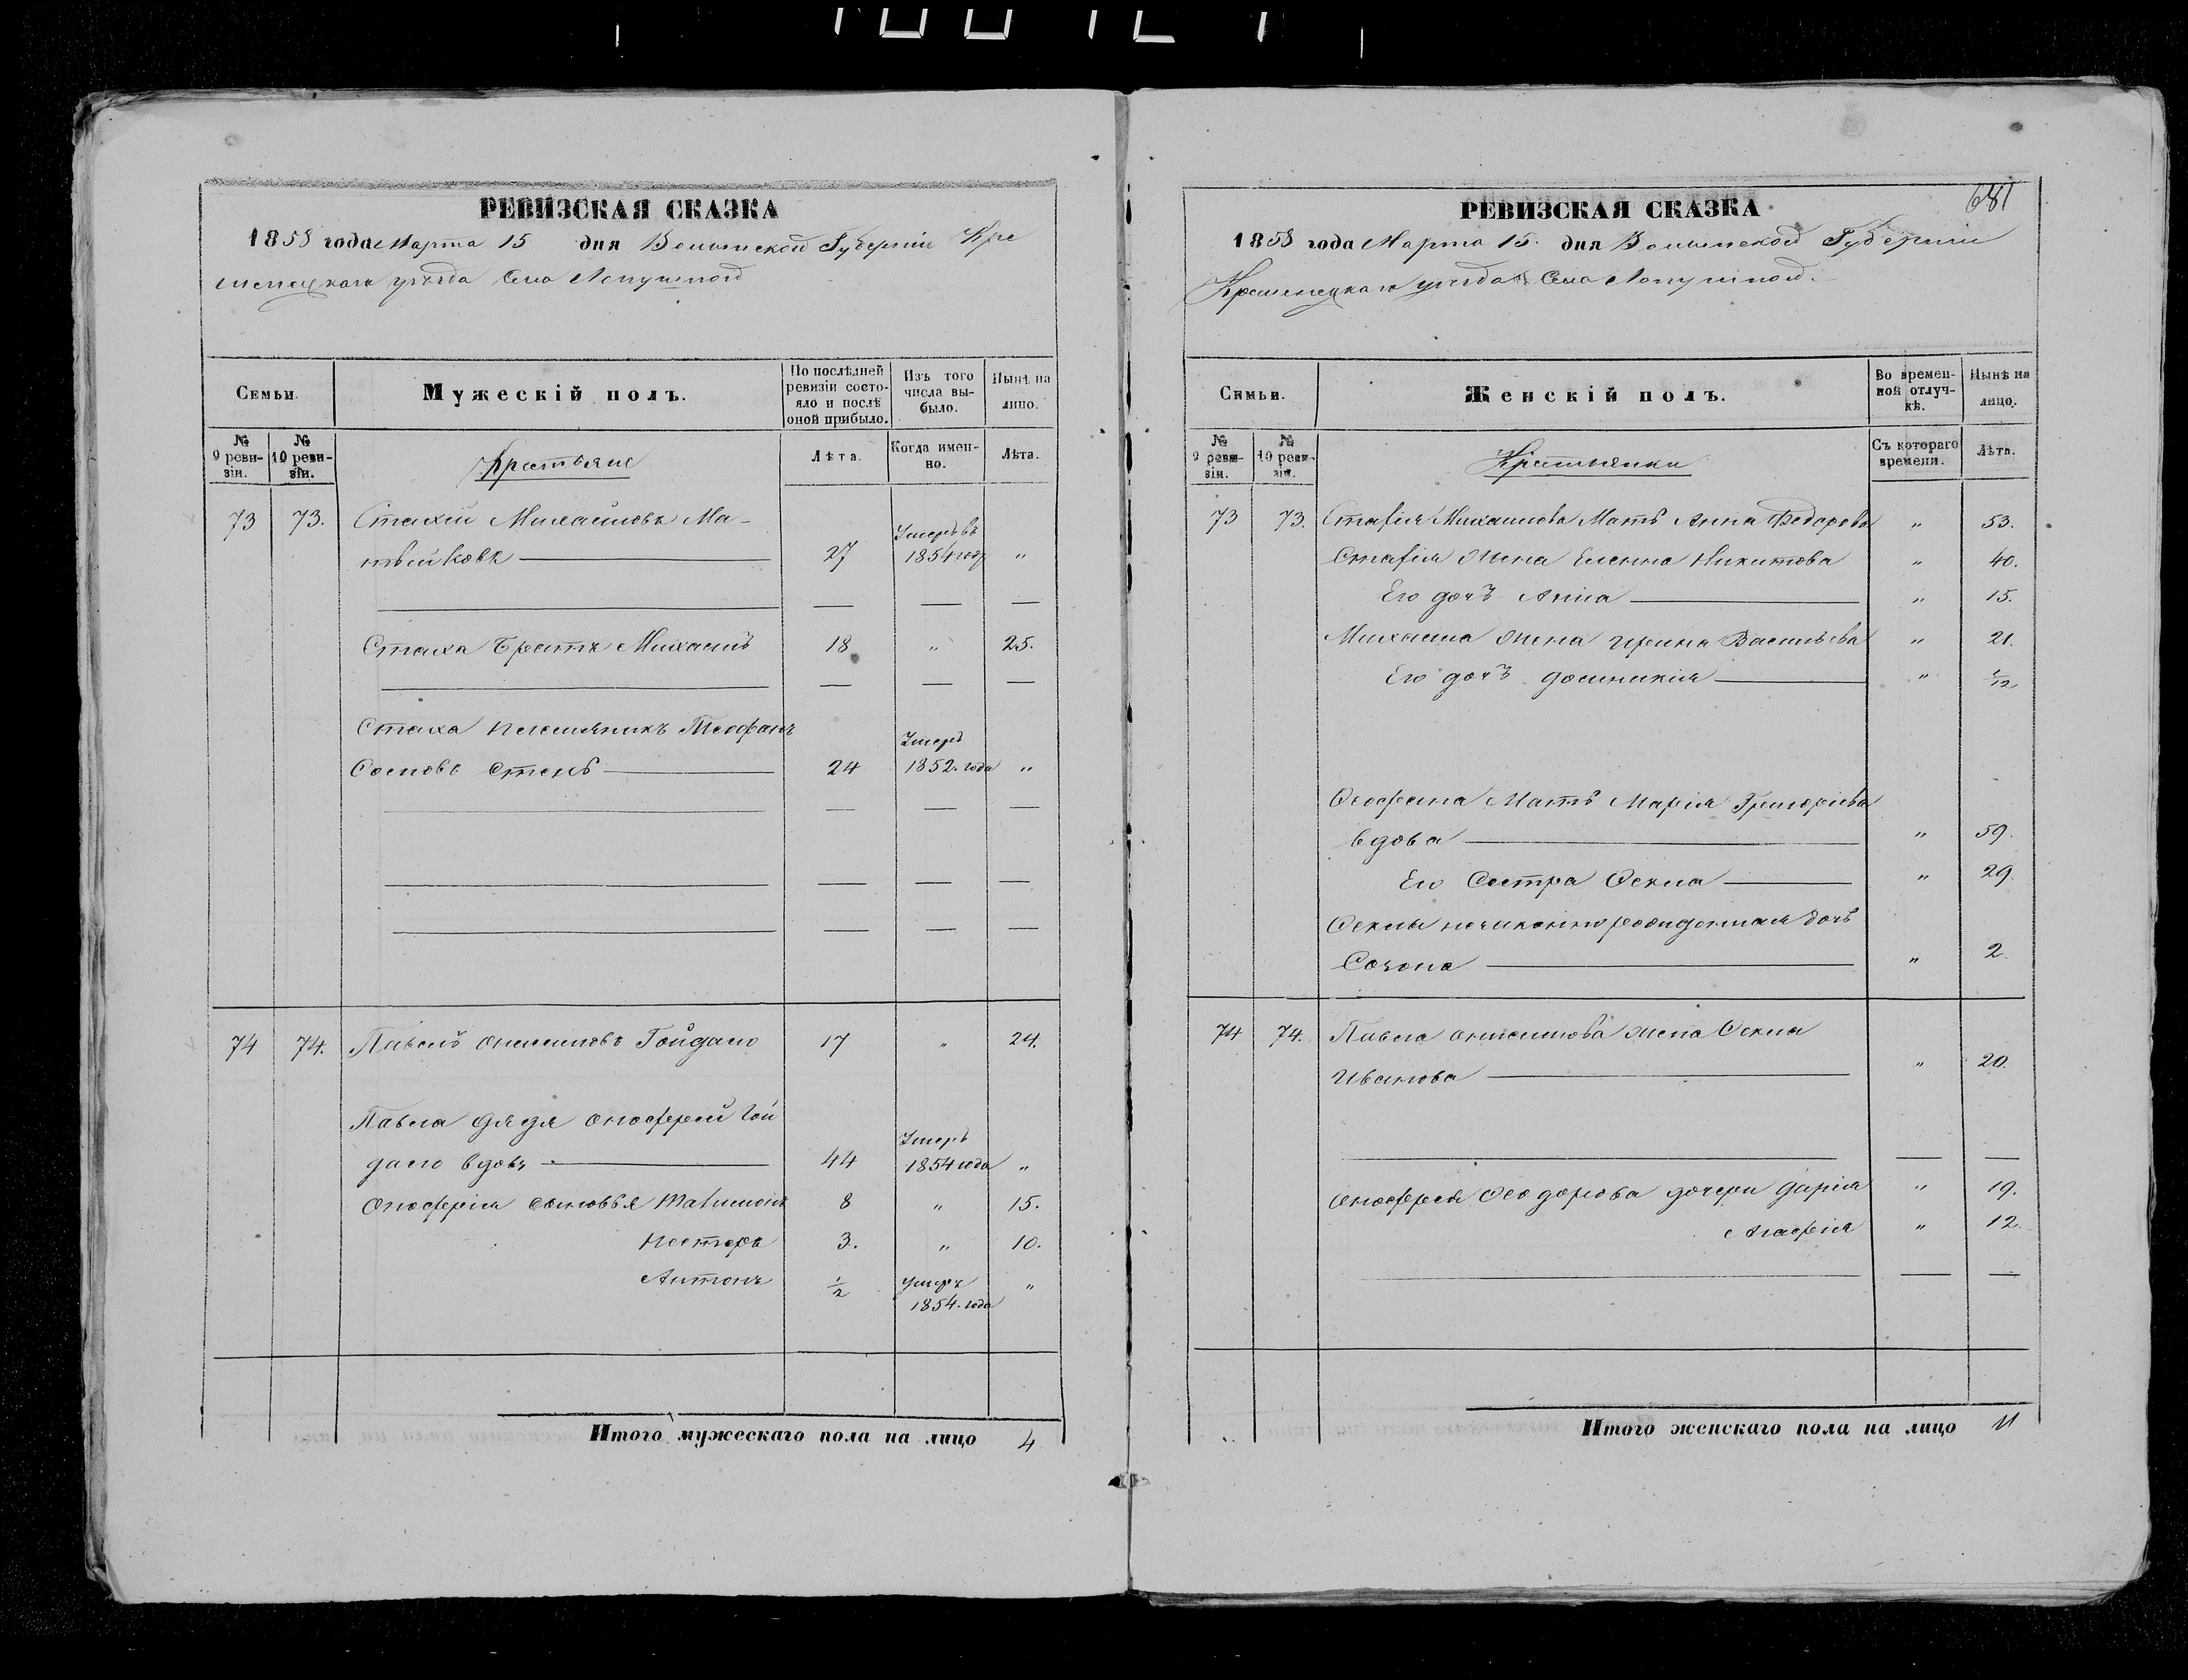 РЕВИЗСКАЯ СКАЗКА
1858 года Марта 15 дня Волынской Губерніи Кре
менецкаго уѣзда Села Лопушной
Семьи.
Мужескій полъ.
По послѣдней ревизіи состояло и послѣ оной прибыло.
Изъ того числа выбыло.
Нынѣ на лицо.
№ 9 ревизіи.
№ 10 ревизіи.
Крестьяне
Лѣта.
Когда именно.
Лѣта.
73 73. Стахій Михайловъ Ма-
твѣйковъ 27 Умеръ въ 1854 году "
Стаха Братъ Михаилъ 18 " 25.
Стаха племянникъ Теофанъ
24 Умеръ 1852. года "
74 74. Павелъ Онисимовъ Гойдало 17 " 24.
Павла дядя Онофрей Гой
дало вдовъ 44 Умеръ 1854 года "
Онофрія сыновья 8 " 15.
Несторъ 3. " 10.
Антонъ 1/2 умеръ 1854. года "
Итого мужескаго пола на лицо 4
681
РЕВИЗСКАЯ СКАЗКА
1858 года Марта 15. дня Волынской Губерніи
Кременецкаго уѣзда Села Лопушной.
Семьи.
Женскій полъ.
Во временной отлучкѣ.
Нынѣ на лицо.
№ 9 ревизіи.
№ 10 ревизіи.
Крестьянки
Съ котораго времени.
Лѣта.
73 73. Михаилова Мать Анна Федорова " 53.
Жена Еленна Никитова " 40.
Его дочь Анна " 15.
Михаила Жена Ирина Васильева " 21.
Его дочь Доминикія "
Ѳеофана Мать Марія Григоріева
вдова " 59.
Его Сестра Ѳекла " 29.
Ѳеклы незаконнорожденная дочь
" 2.
74 74. Павла Онисимова жена Ѳекла
Иванова " 20.
Онофрея Ѳеодорова дочери Дарія " 19.
Агафія " 12.
Итого женскаго пола на лицо 11